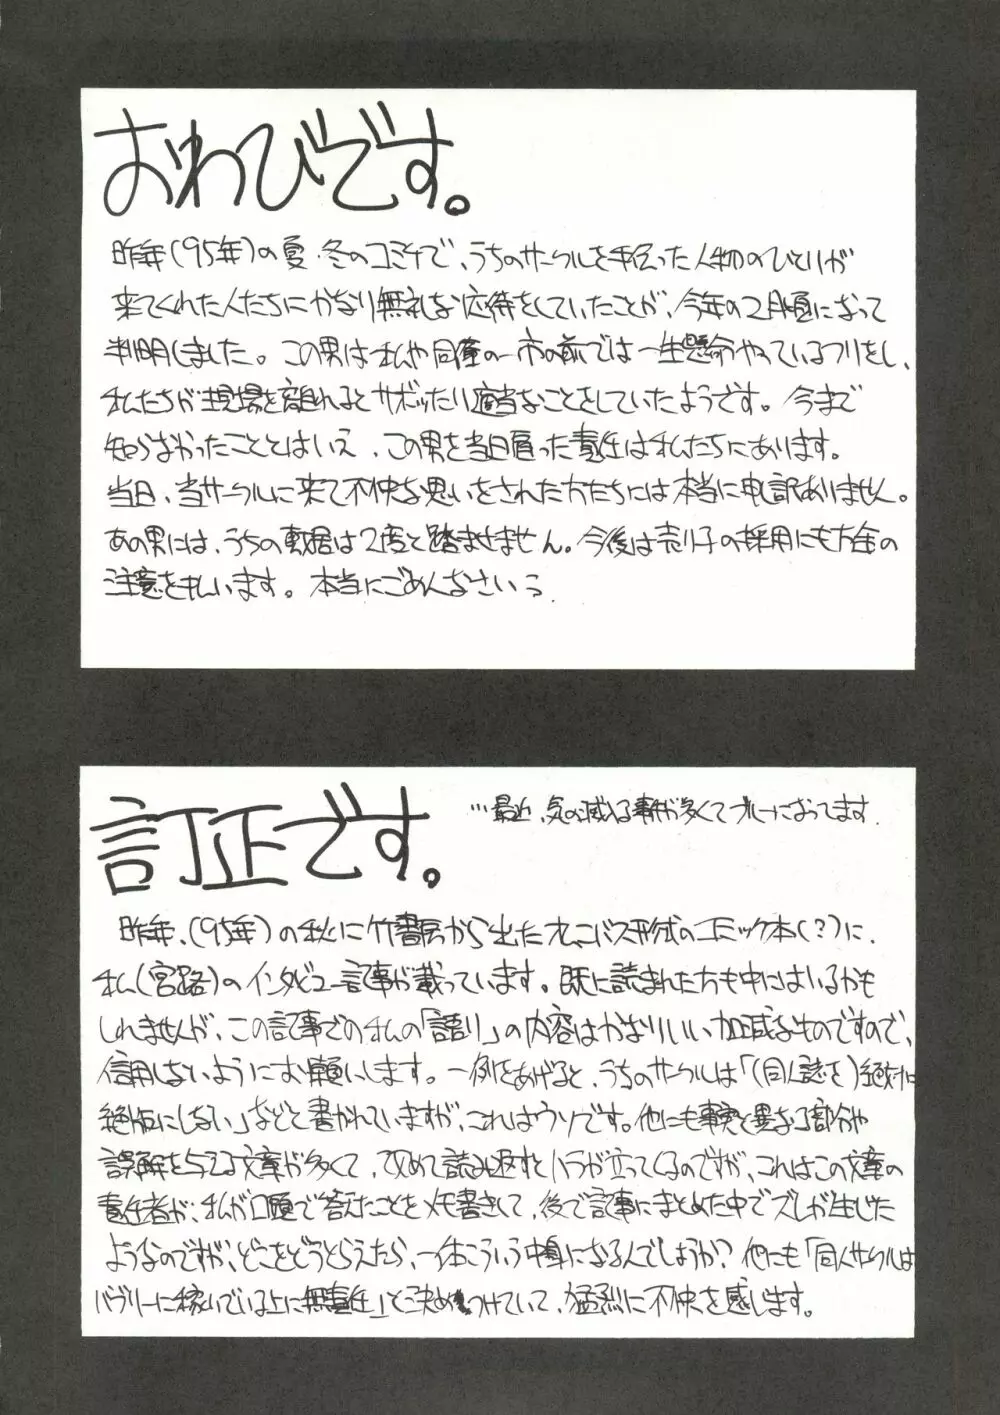 おわびです。
昨年(95年)の夏・冬のコミケで、うちのサークルを手伝った人物のひとりが
来てくれた人たちにかなり無礼な応待をしていたことが、今年の2月頃になって
判明しました。この男は私や同僚の一市の前では一生懸命やっているフリをし、
私たちが現場を離れるとサボッたり適当なことをしていたようです。今まで
知らなかったこととはいえ、この男を当日雇った責任は私たちにあります。
当日、当サークルに来て不快な思いをされた方たちには本当に申し訳ありません。
あの男には、うちの敷居は2度と踏ませません。今後は売り子の採用にも万全の
注意を払います。本当にごめんなさいっ
訂正です。
…最近、気の滅入る事が多くてブルーになってます.
昨年、(95年)の秋に竹書房から出たオムニバス形式のコミック本(?)に、
私(宮路)のインタビュー記事が載っています。既に読まれた方も中にはいるかも
しれませんが、この記事での私の「語り」の内容はかなりいい加減なものですので、
信用しないようにお願いします。一例をあげると、うちのサークルは「(同人誌を)絶対に
絶版にしない」などと書かれていますが、これはウソです。他にも事実と異なる部分や
誤解を与える文章が多くて、改めて読み返すとハラが立ってくるのですが、これはこの文章の
責任者が、私が口頭で答えたことをメモ書きして、後で記事にまとめた中でズレが生じた
ようなのですが、どこをどうとらえたら、一体こういう中身になるんでしょうか?他にも「同人サークルは
バブリーに稼いでいる上に無責任」と決めつけていて、猛烈に不快を感じます。